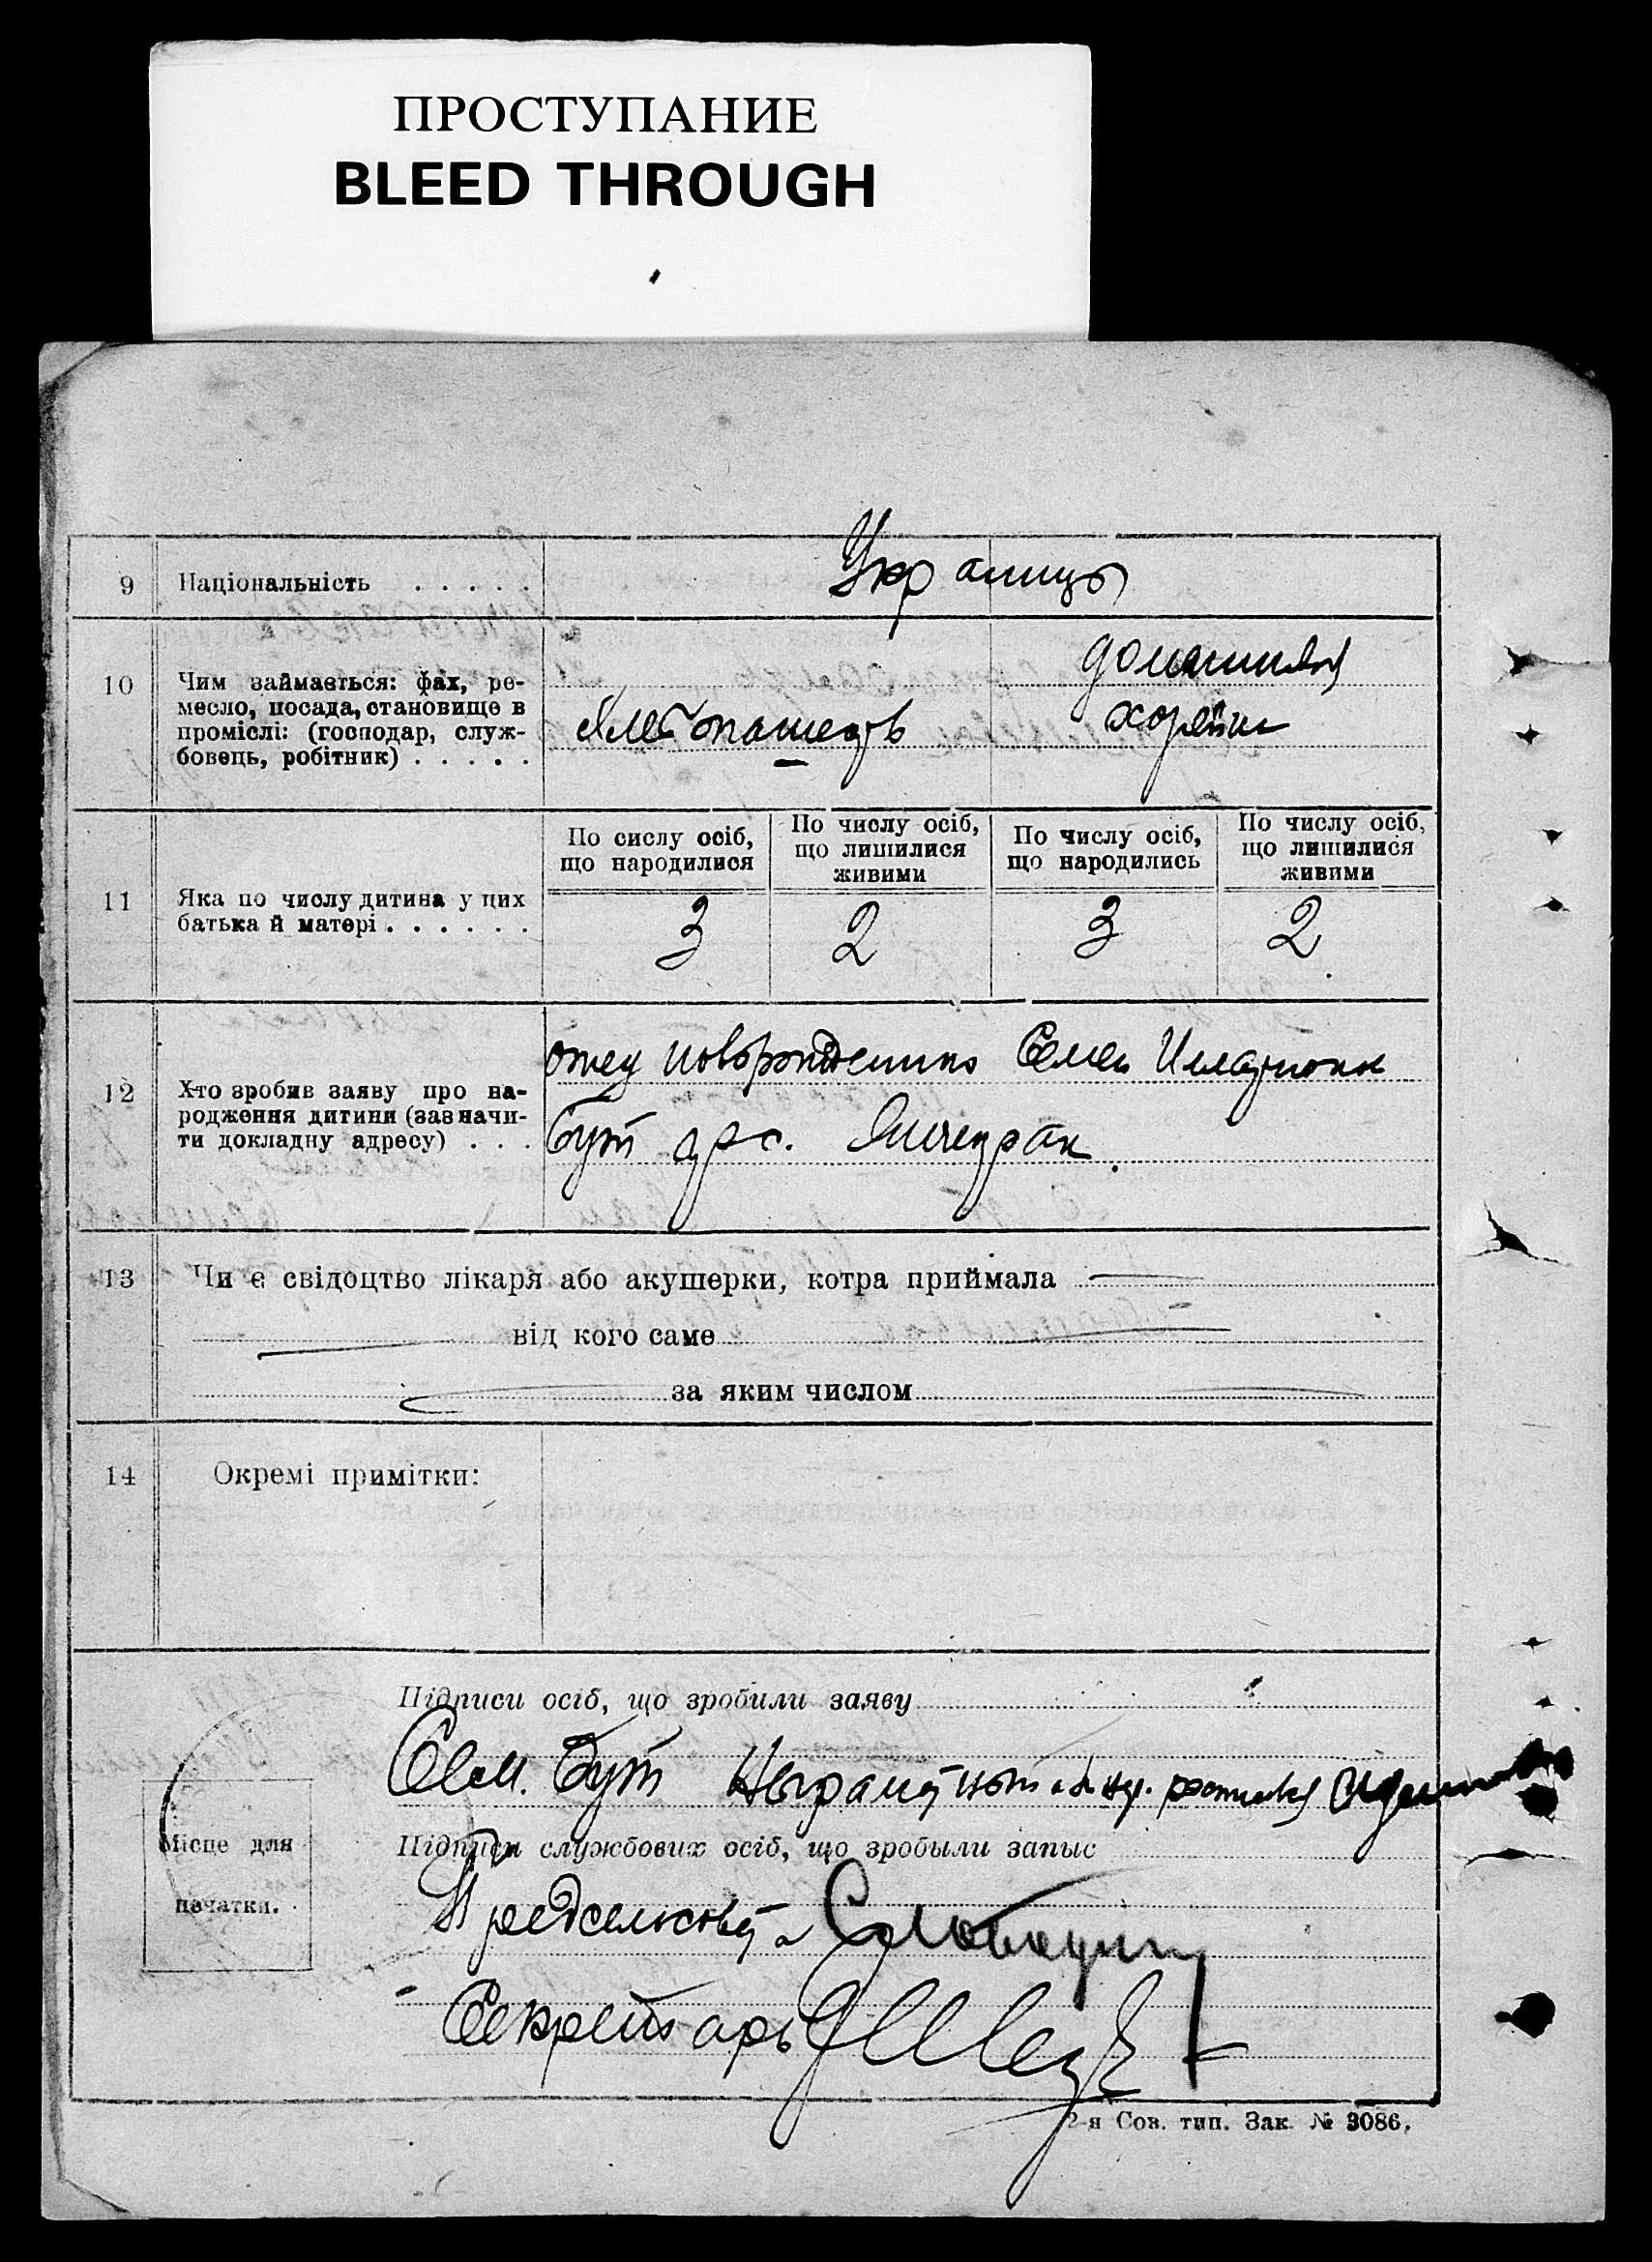 ПРОСТУПАНИЕ
BLEED THROUGH
9 Національність . . . . . Украинцы
10 Чим займається: фах, ре-
месло, посада, становище в
проміслі: (господар, служ-
бовець, робітник) . . . . .
Хлебопашец
домашняя
11 Яка по числу дитина у цих
батька й матері . . . . . .
По сислу осіб,
що народилися
По числу осіб,
що лишилися
живими
По числу осіб,
що народились
По числу осіб,
що лишилися
живими
3 2 3 2
12 Хто зробив заяву про на-
родження дитини (зазначи-
ти докладну адресу) . . .
отец Семен
Бут
13 Чи є свідоцтво лікаря або акушерки, котра приймала
від кого саме
за яким числом
14 Окремі примітки:
Підписи осіб, що зробили заяву
Сем. Бут
Підписи службових осіб, що зробыли запыс
Предсельсовета
Секретарь
Місце для
печатки.
2-я Сов. тип. Зак. № 3086.